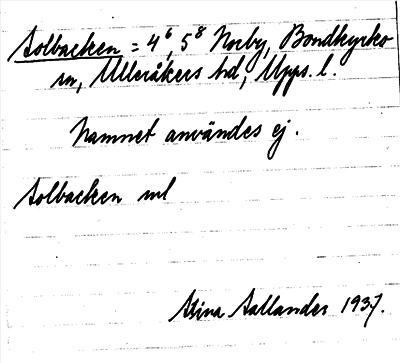 Solbacken = 4⁶, 5⁸ Norby, Bondkyrko
sn, Ulleråkers hd, Upps. l.
Namnet användes ej.
Solbacken ml
Stina Sallander 1937.